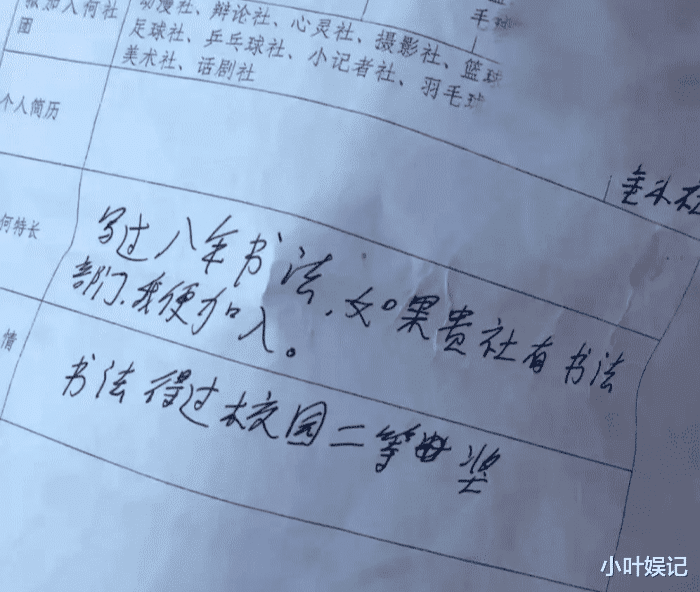 拟加入何社团
动漫社、辩论社、心灵社、摄影社、篮球
足球社、乒乓球社、小记者社、羽毛球
美术社、话剧社
毛球
个人简历
何特长
写过八年书法,如果贵社有书法
部门,我便加入。
情
书法得过校园二等奖
小叶娱记